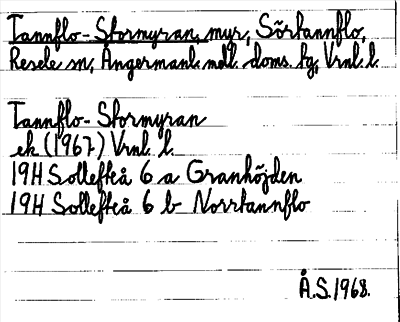 Tannflo-Stormyran, myr, Sörtannflo,
Resele sn, Ångermanl. mell. doms. fg, Vrnl. l.
Tannflo-Stormyran
ek (1967) Vrnl. l.
19H Sollefteå 6 a Granhöjden
19H Sollefteå 6 b Norrtannflo
Å.S. 1968.